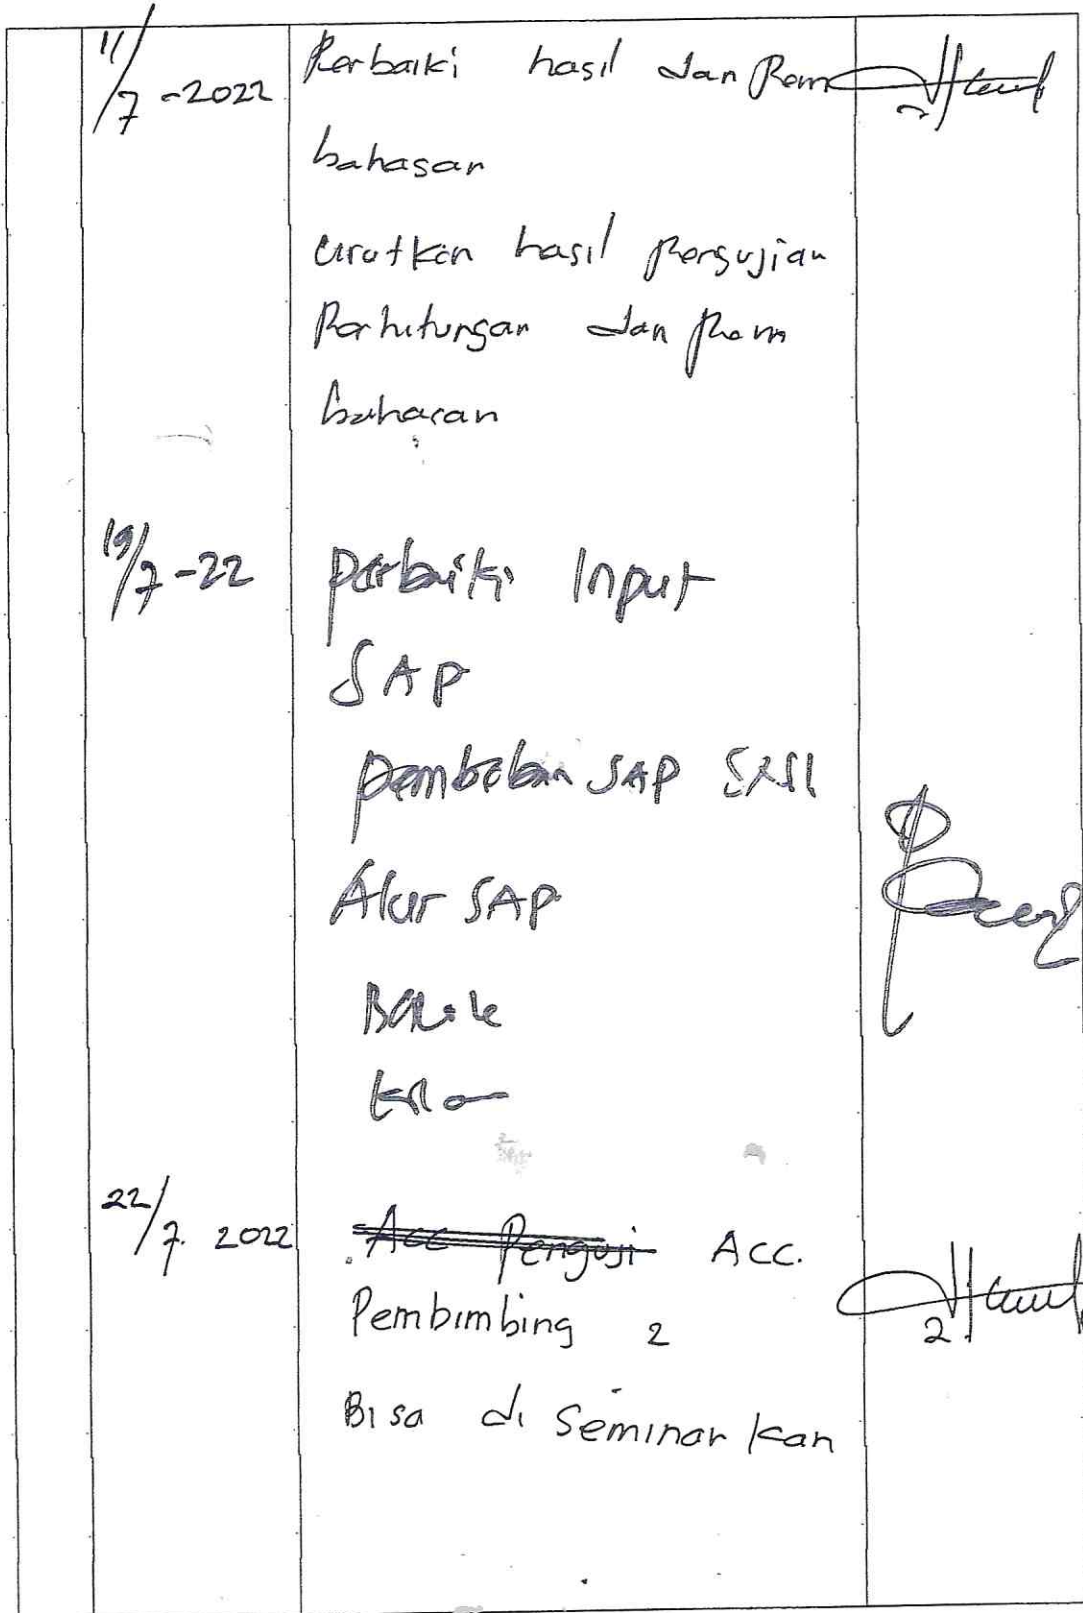 11/7-2022 Perbaiki hasil dan Pem
bahasan
Urutkan hasil Pengujian
Perhitungan dan Pem
bahasan
19/7-22 perbaiki Input
SAP
pembeban SAP
Alur SAP
22/7. 2022 Acc Penguji Acc.
Pembimbing 2 2
Bisa di Seminar kan